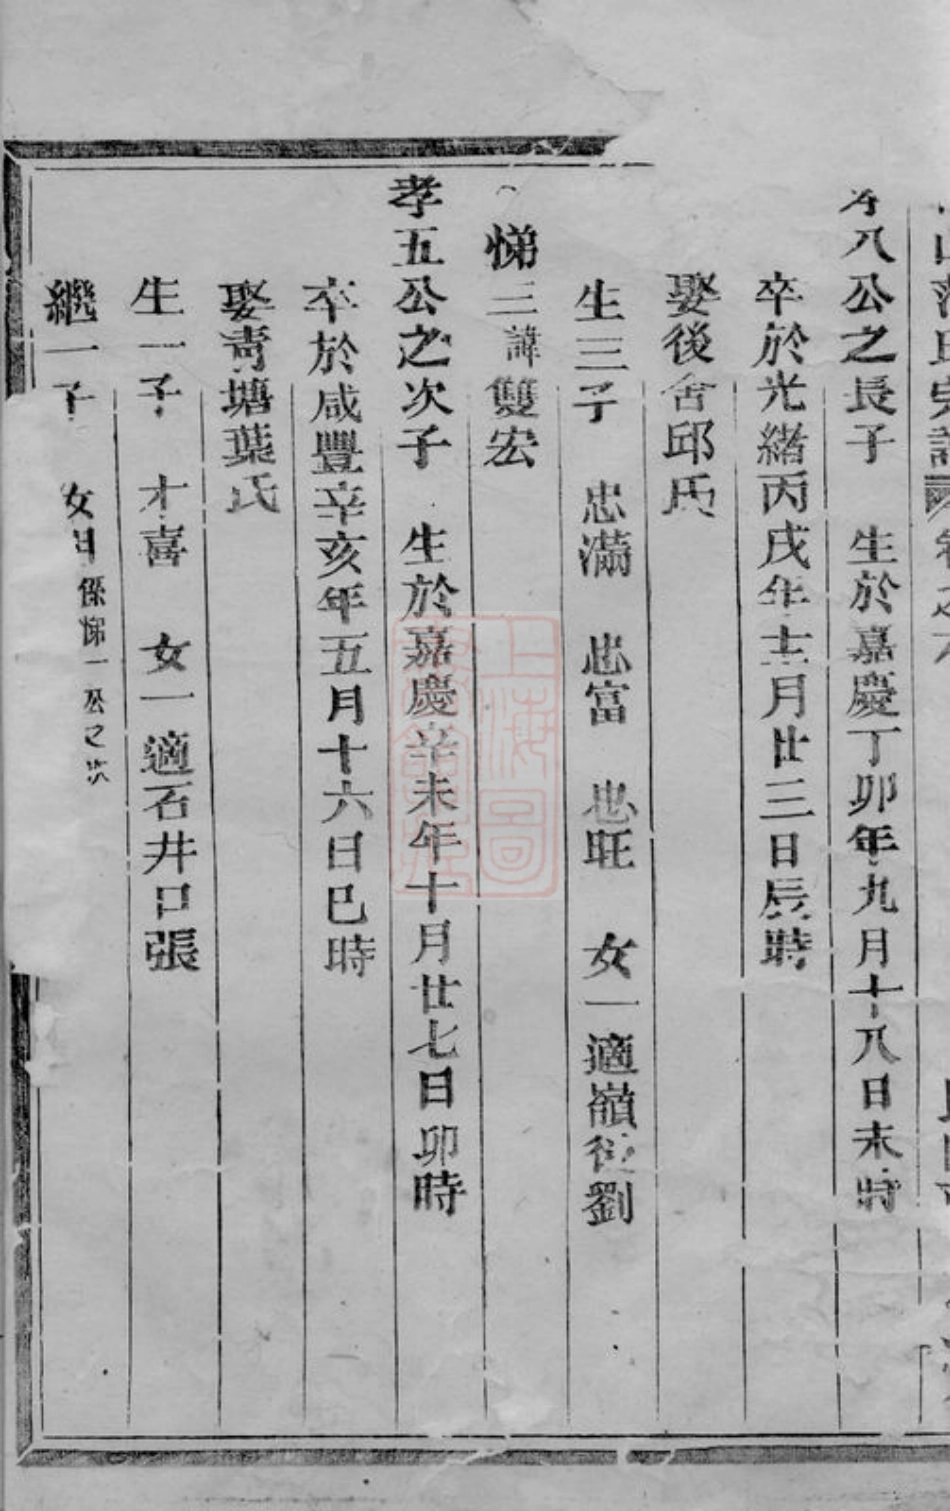 八公之長子 生於嘉慶丁卯年九月十八日未時
卒於光緒丙戌年十二月廿三日辰時
娶後舍邱氏
生三子 忠滿 忠富 忠旺 女一適嶺後劉
悌三諱雙宏
孝五公之次子 生於嘉慶辛未年十月廿七日卯時
卒於咸豐辛亥年五月十六日巳時
娶青塘葉氏
生一子 才喜 女一適石井口張
繼一子 文明係悌一公之次
上海圖